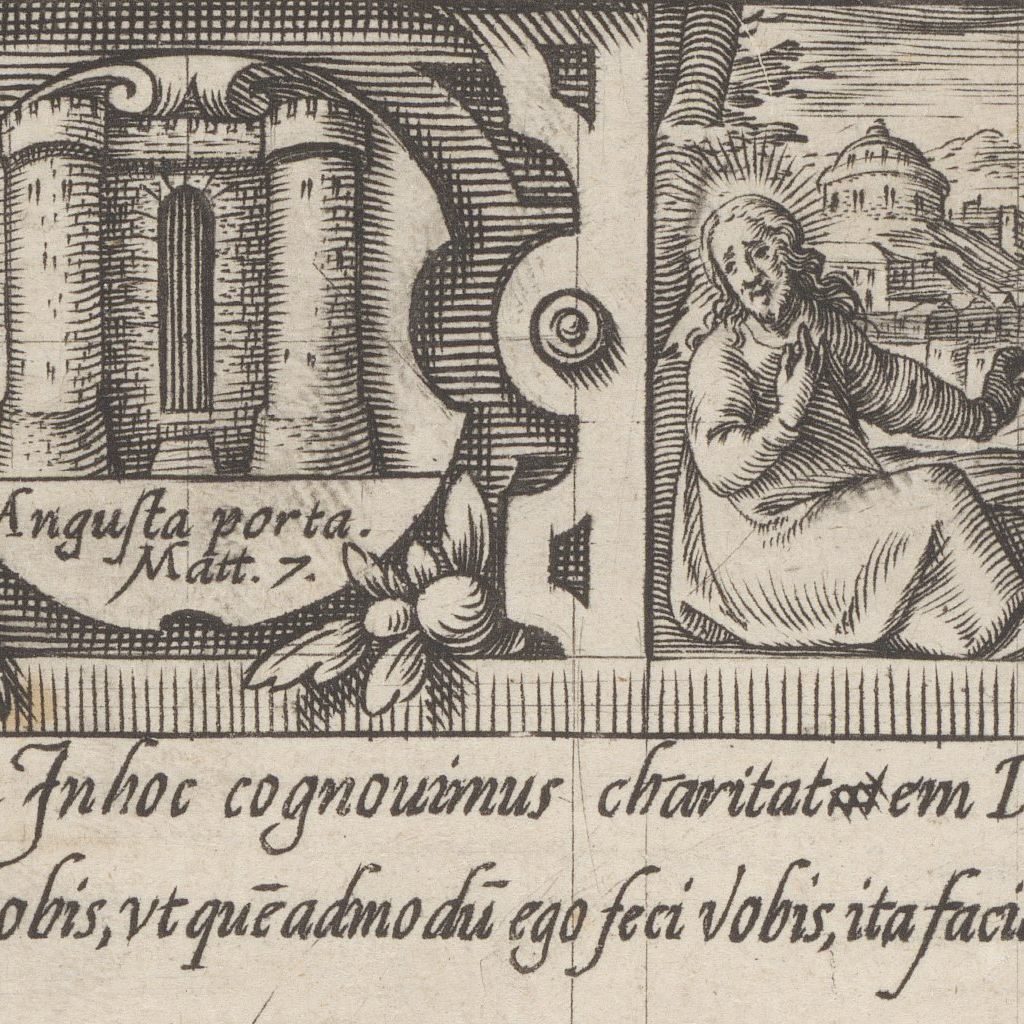 Angusta porta.
Matt. 7.
In hoc cognouimus charitatem
obis, vt quēadmodū ego feci vobis, ita faci